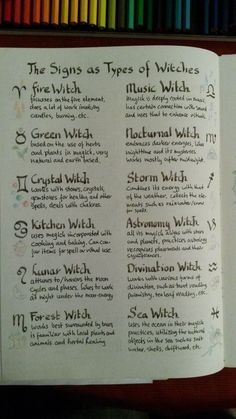 The Signs as Types of Witches
♈ Fire Witch
focuses on the fire element,
does a lot of work involving
candles, burning, etc.
♉ Green Witch
based on the use of herbs
and plants in magick, very
natural and earth based.
♊ Crystal Witch
works with stones, crystals,
gemstones for healing and other
spells, deals with chakras.
♋ Kitchen Witch
uses magick incorporated with
cooking and baking. Can con-
jure items for spell or ritual use.
♌ Lunar Witch
attunes to/honors the Moon
cycles and phases. Likes to work
at night under the moon energy.
♍ Forest Witch
works best surrounded by trees
is familiar with local plants and
animals and herbal healing.
Music Witch ♎
Magick is deeply rooted in music,
has certain connection with sound
and uses that to enhance rituals.
Nocturnal Witch ♏
embraces darker energies, likes
nighttime and its mysteries,
works mostly after midnight.
Storm Witch ♐
Combines its energy with that
of the weather, collects the ele-
ments such as rainwater/snow
for spells.
Astronomy Witch ♑
all its magick aligns with stars
and planets, practices astrology
recognizes placements and their
significance.
Divination Witch ♒
works with various forms of
divination, such as tarot reading
palmistry, tea leaf reading, etc.
Sea Witch ♓
uses the ocean in their magick
practices, utilizing the natural
objects in the sea such as salt
water, shells, driftwood, etc.